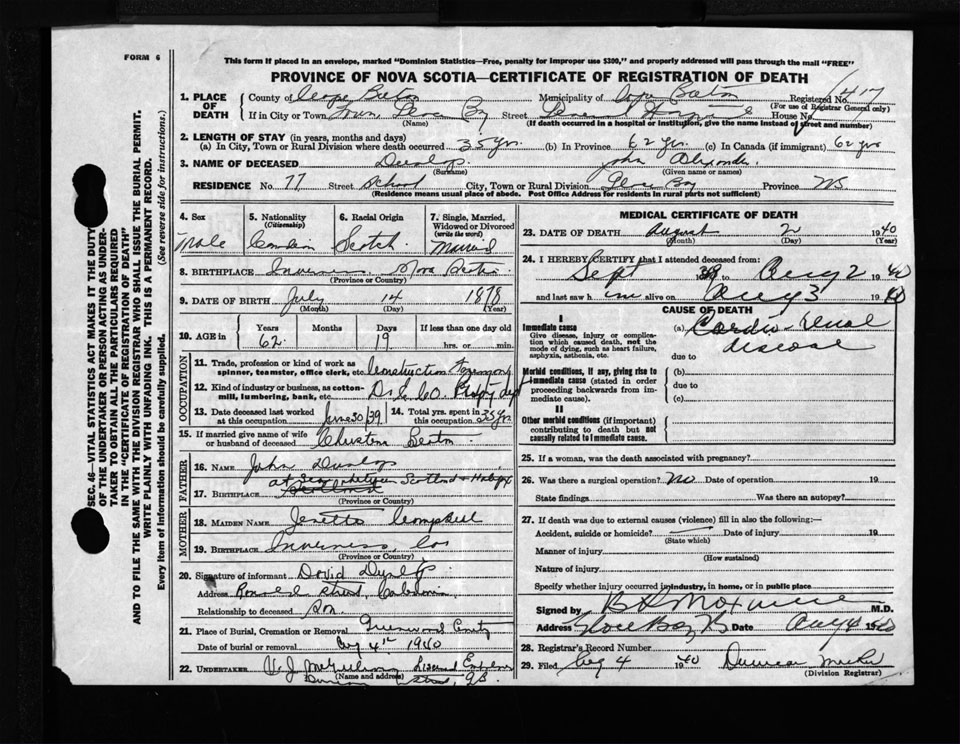 FORM 6
This form if placed in an envelope, marked "Dominion Statistics—Free, penalty for improper use $300," and properly addressed will pass through the mail "FREE"
PROVINCE OF NOVA SCOTIA—CERTIFICATE OF REGISTRATION OF DEATH
1. PLACE OF DEATH County of Cape Breton Municipality of Cape Breton Registered No. 417
(For use of Registrar General only)
If in City or Town Town Glace Bay Street House No.
(Name) (If death occurred in a hospital or institution, give the name instead of street and number)
2. LENGTH OF STAY (in years, months and days)
(a) In City, Town or Rural Division where death occurred 35 yrs. (b) In Province 62 yrs. (c) In Canada (if immigrant) 62 yrs
3. NAME OF DECEASED Dunlop John Alexander
(Surname) (Given name or names)
RESIDENCE No. 77 Street School City, Town or Rural Division Glace Bay Province NS
(Residence means usual place of abode. Post Office Address for residents in rural parts not sufficient)
SEC. 46—VITAL STATISTICS ACT MAKES IT THE DUTY
OF THE UNDERTAKER OR PERSON ACTING AS UNDER-
TAKER TO OBTAIN ALL THE PARTICULARS REQUIRED
IN THE "CERTIFICATE OF REGISTRATION OF DEATH"
AND TO FILE THE SAME WITH THE DIVISION REGISTRAR WHO SHALL ISSUE THE BURIAL PERMIT.
WRITE PLAINLY WITH UNFADING INK. THIS IS A PERMANENT RECORD.
Every item of information should be carefully supplied. (See reverse side for instructions.)
4. Sex Male
5. Nationality (Citizenship) Canadian
6. Racial Origin Scotch
7. Single, Married, Widowed or Divorced (write the word) Married
8. BIRTHPLACE Inverness, Nova Scotia
(Province or Country)
9. DATE OF BIRTH July 14 1878
(Month) (Day) (Year)
10. AGE in Years 62 Months Days 19 If less than one day old hrs. or min.
OCCUPATION
11. Trade, profession or kind of work as spinner, teamster, office clerk, etc. Construction
12. Kind of industry or business, as cotton-mill, lumbering, bank, etc.
13. Date deceased last worked at this occupation June 30/39
14. Total yrs. spent in this occupation 25 yrs
15. If married give name of wife or husband of deceased Christena Beaton
FATHER
16. NAME John Dunlop
17. BIRTHPLACE at Sea Scotland
(Province or Country)
MOTHER
18. MAIDEN NAME Jenette Campbell
19. BIRTHPLACE Inverness, Co
(Province or Country)
20. Signature of informant David Dunlop
Address Street, Caledonia
Relationship to deceased Son
21. Place of Burial, Cremation or Removal Greenwood
Date of burial or removal Aug 4th 1940
22. UNDERTAKER V. J.
(Name and address)
MEDICAL CERTIFICATE OF DEATH
23. DATE OF DEATH August 2 1940
(Month) (Day) (Year)
24. I HEREBY CERTIFY that I attended deceased from:
Sept to Aug 2 1940
and last saw h im alive on Aug 3 1940
CAUSE OF DEATH
I
Immediate cause (a) Cardio-renal disease
Give disease, injury or complication which caused death, not the mode of dying, such as heart failure, asphyxia, asthenia, etc.
due to
Morbid conditions, if any, giving rise to immediate cause (stated in order proceeding backwards from immediate cause).
(b)
due to
(c)
II
Other morbid conditions (if important) contributing to death but not causally related to immediate cause.
25. If a woman, was the death associated with pregnancy?
26. Was there a surgical operation? No Date of operation 19
State findings Was there an autopsy?
27. If death was due to external causes (violence) fill in also the following:—
Accident, suicide or homicide? Date of injury 19
(State which)
Manner of injury
(How sustained)
Nature of injury
Specify whether injury occurred in industry, in home, or in public place
Signed by M.D.
Address Glace Bay Date Aug 4 1940
28. Registrar's Record Number
29. Filed Aug 4 1940 Duncan
(Division Registrar)